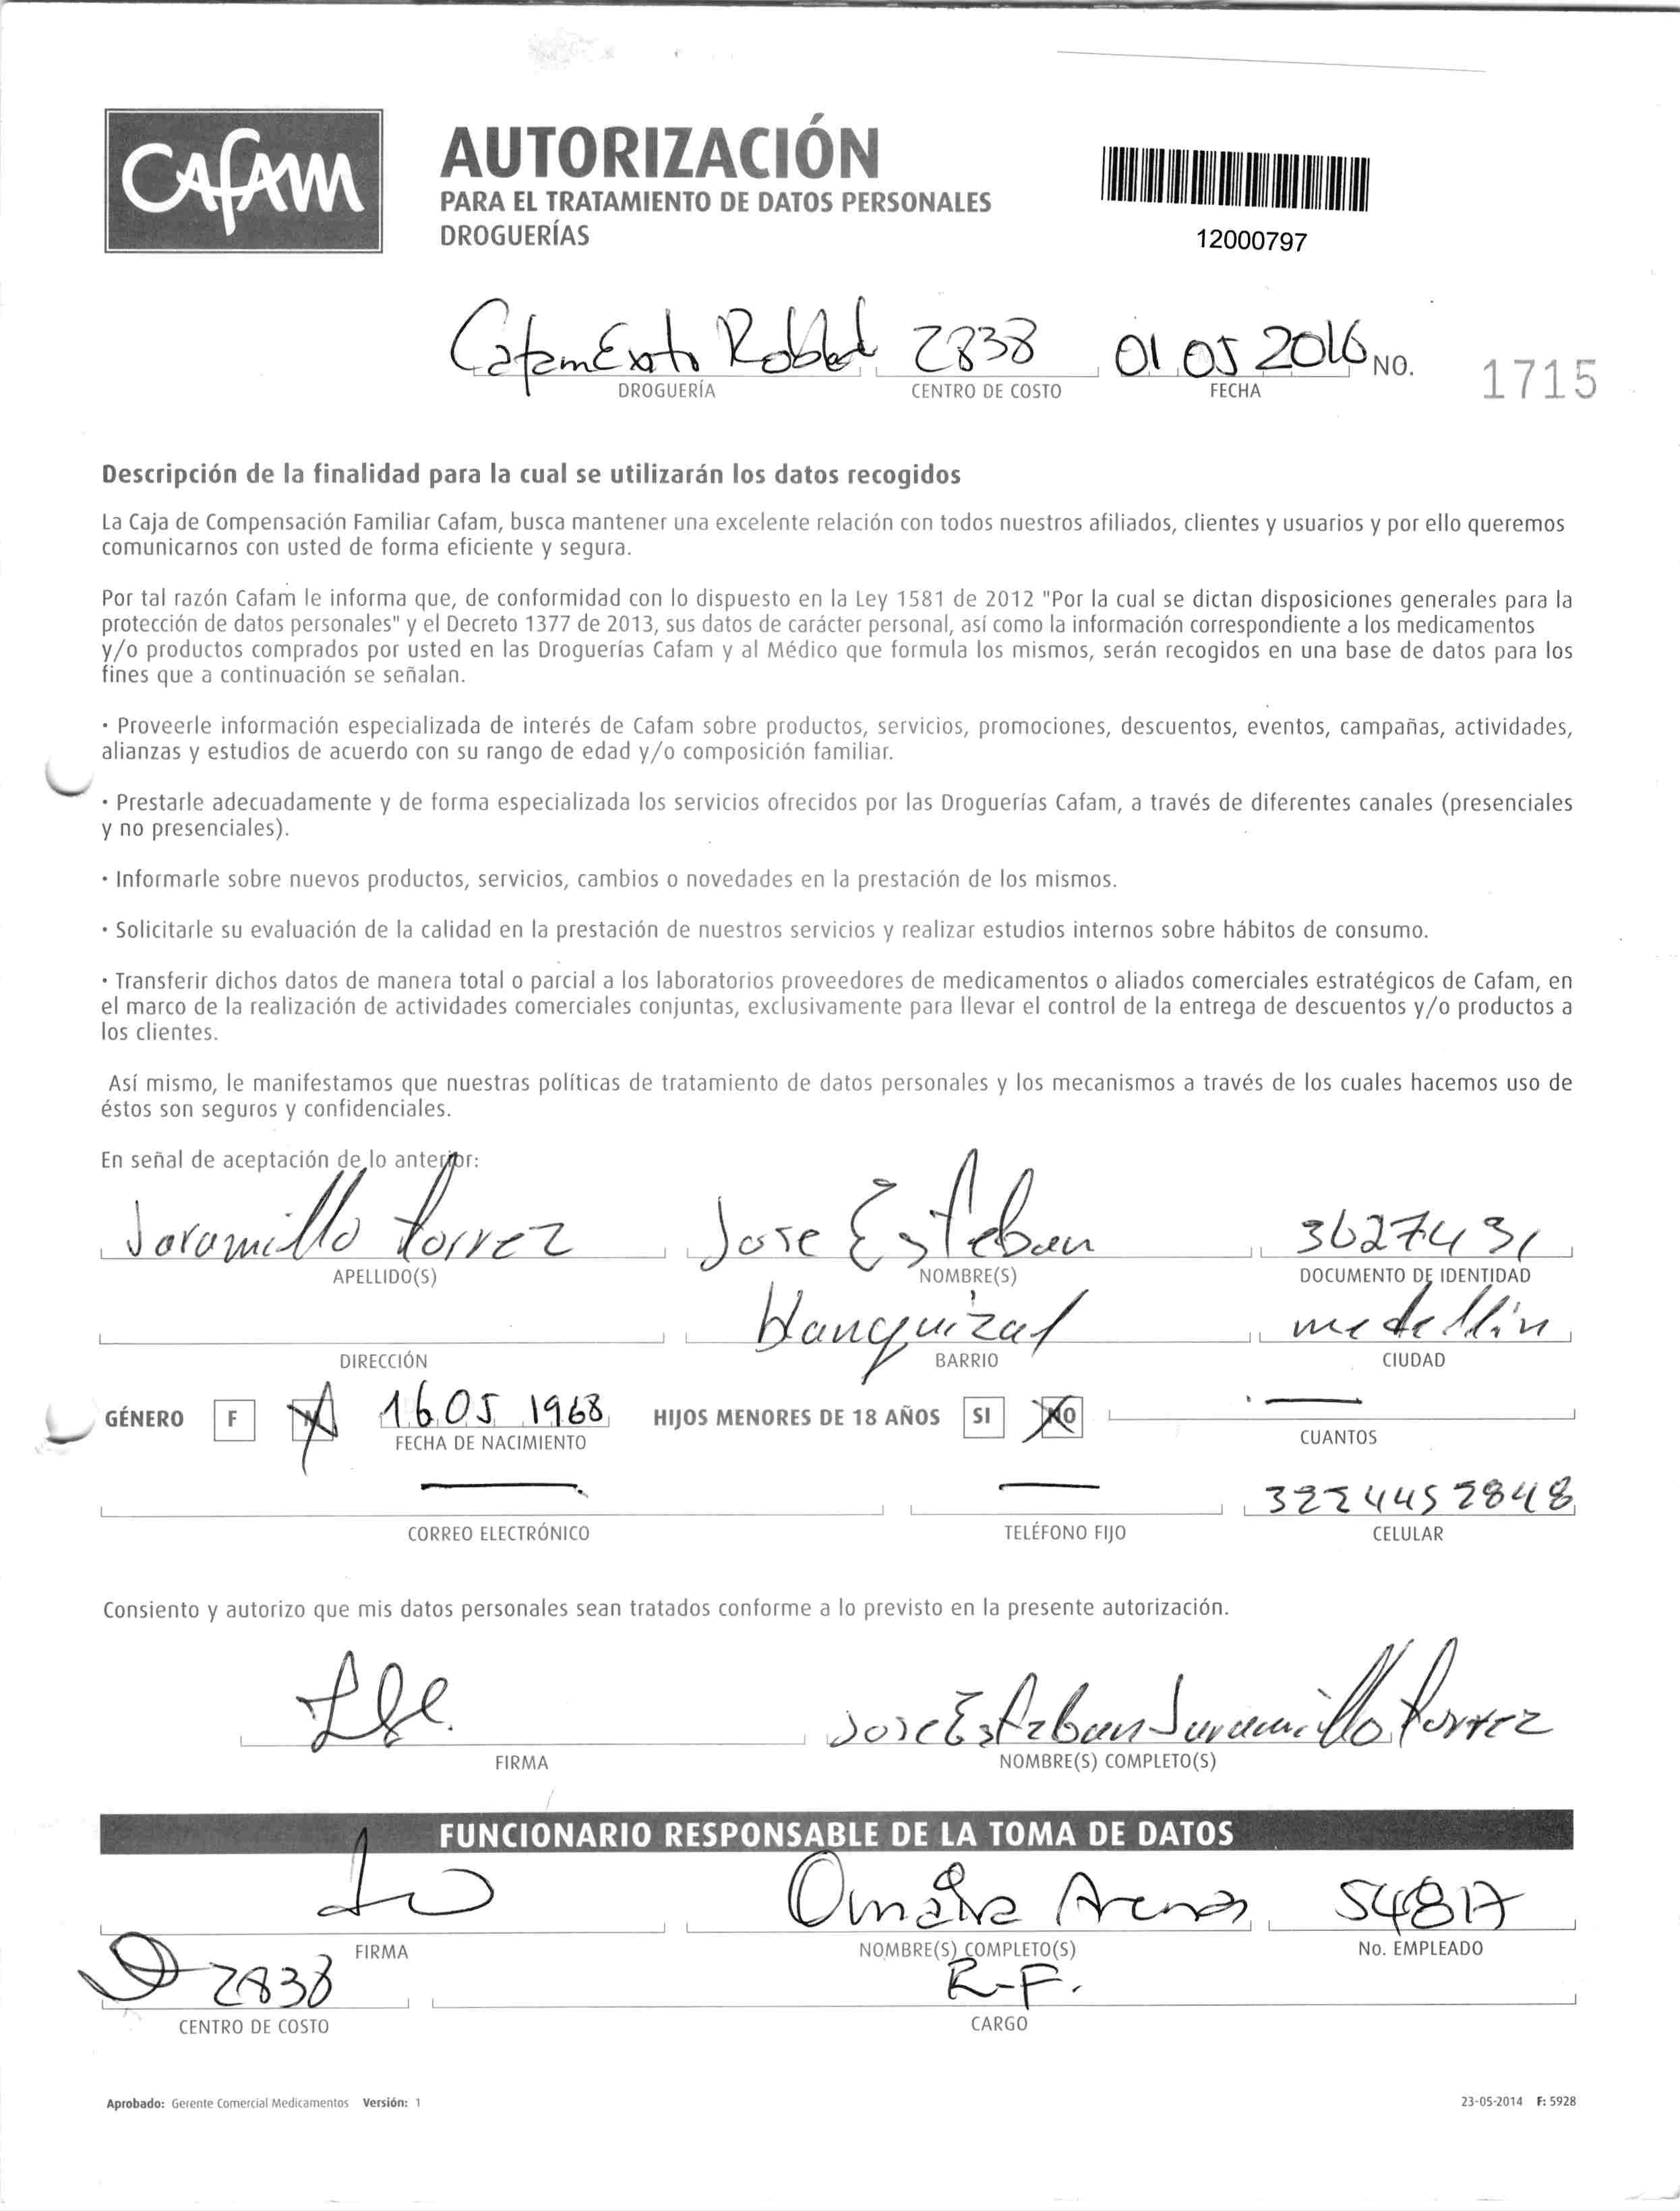 Cafam
AUTORIZACIÓN
PARA EL TRATAMIENTO DE DATOS PERSONALES
DROGUERÍAS
12000797
Cafam Exito Robledo 2838 01 05 2016 NO. 1715
DROGUERÍA CENTRO DE COSTO FECHA
Descripción de la finalidad para la cual se utilizarán los datos recogidos
La Caja de Compensación Familiar Cafam, busca mantener una excelente relación con todos nuestros afiliados, clientes y usuarios y por ello queremos
comunicarnos con usted de forma eficiente y segura.
Por tal razón Cafam le informa que, de conformidad con lo dispuesto en la Ley 1581 de 2012 "Por la cual se dictan disposiciones generales para la
protección de datos personales" y el Decreto 1377 de 2013, sus datos de carácter personal, así como la información correspondiente a los medicamentos
y/o productos comprados por usted en las Droguerías Cafam y al Médico que formula los mismos, serán recogidos en una base de datos para los
fines que a continuación se señalan.
· Proveerle información especializada de interés de Cafam sobre productos, servicios, promociones, descuentos, eventos, campañas, actividades,
alianzas y estudios de acuerdo con su rango de edad y/o composición familiar.
· Prestarle adecuadamente y de forma especializada los servicios ofrecidos por las Droguerías Cafam, a través de diferentes canales (presenciales
y no presenciales).
· Informarle sobre nuevos productos, servicios, cambios o novedades en la prestación de los mismos.
· Solicitarle su evaluación de la calidad en la prestación de nuestros servicios y realizar estudios internos sobre hábitos de consumo.
· Transferir dichos datos de manera total o parcial a los laboratorios proveedores de medicamentos o aliados comerciales estratégicos de Cafam, en
el marco de la realización de actividades comerciales conjuntas, exclusivamente para llevar el control de la entrega de descuentos y/o productos a
los clientes.
Así mismo, le manifestamos que nuestras políticas de tratamiento de datos personales y los mecanismos a través de los cuales hacemos uso de
éstos son seguros y confidenciales.
En señal de aceptación de lo anterior:
Jaramillo torrez Jose Esteban 3627431
APELLIDO(S) NOMBRE(S) DOCUMENTO DE IDENTIDAD
blanquizal medellín
DIRECCIÓN BARRIO CIUDAD
GÉNERO F M 16 05 1968 HIJOS MENORES DE 18 AÑOS SI NO —
FECHA DE NACIMIENTO CUANTOS
— — 3224452848
CORREO ELECTRÓNICO TELÉFONO FIJO CELULAR
Consiento y autorizo que mis datos personales sean tratados conforme a lo previsto en la presente autorización.
Jose Esteban Jaramillo torrez
FIRMA NOMBRE(S) COMPLETO(S)
FUNCIONARIO RESPONSABLE DE LA TOMA DE DATOS
Omaira Arenas 54817
FIRMA NOMBRE(S) COMPLETO(S) No. EMPLEADO
2838 R-F.
CENTRO DE COSTO CARGO
Aprobado: Gerente Comercial Medicamentos Versión: 1 23-05-2014 F: 5928